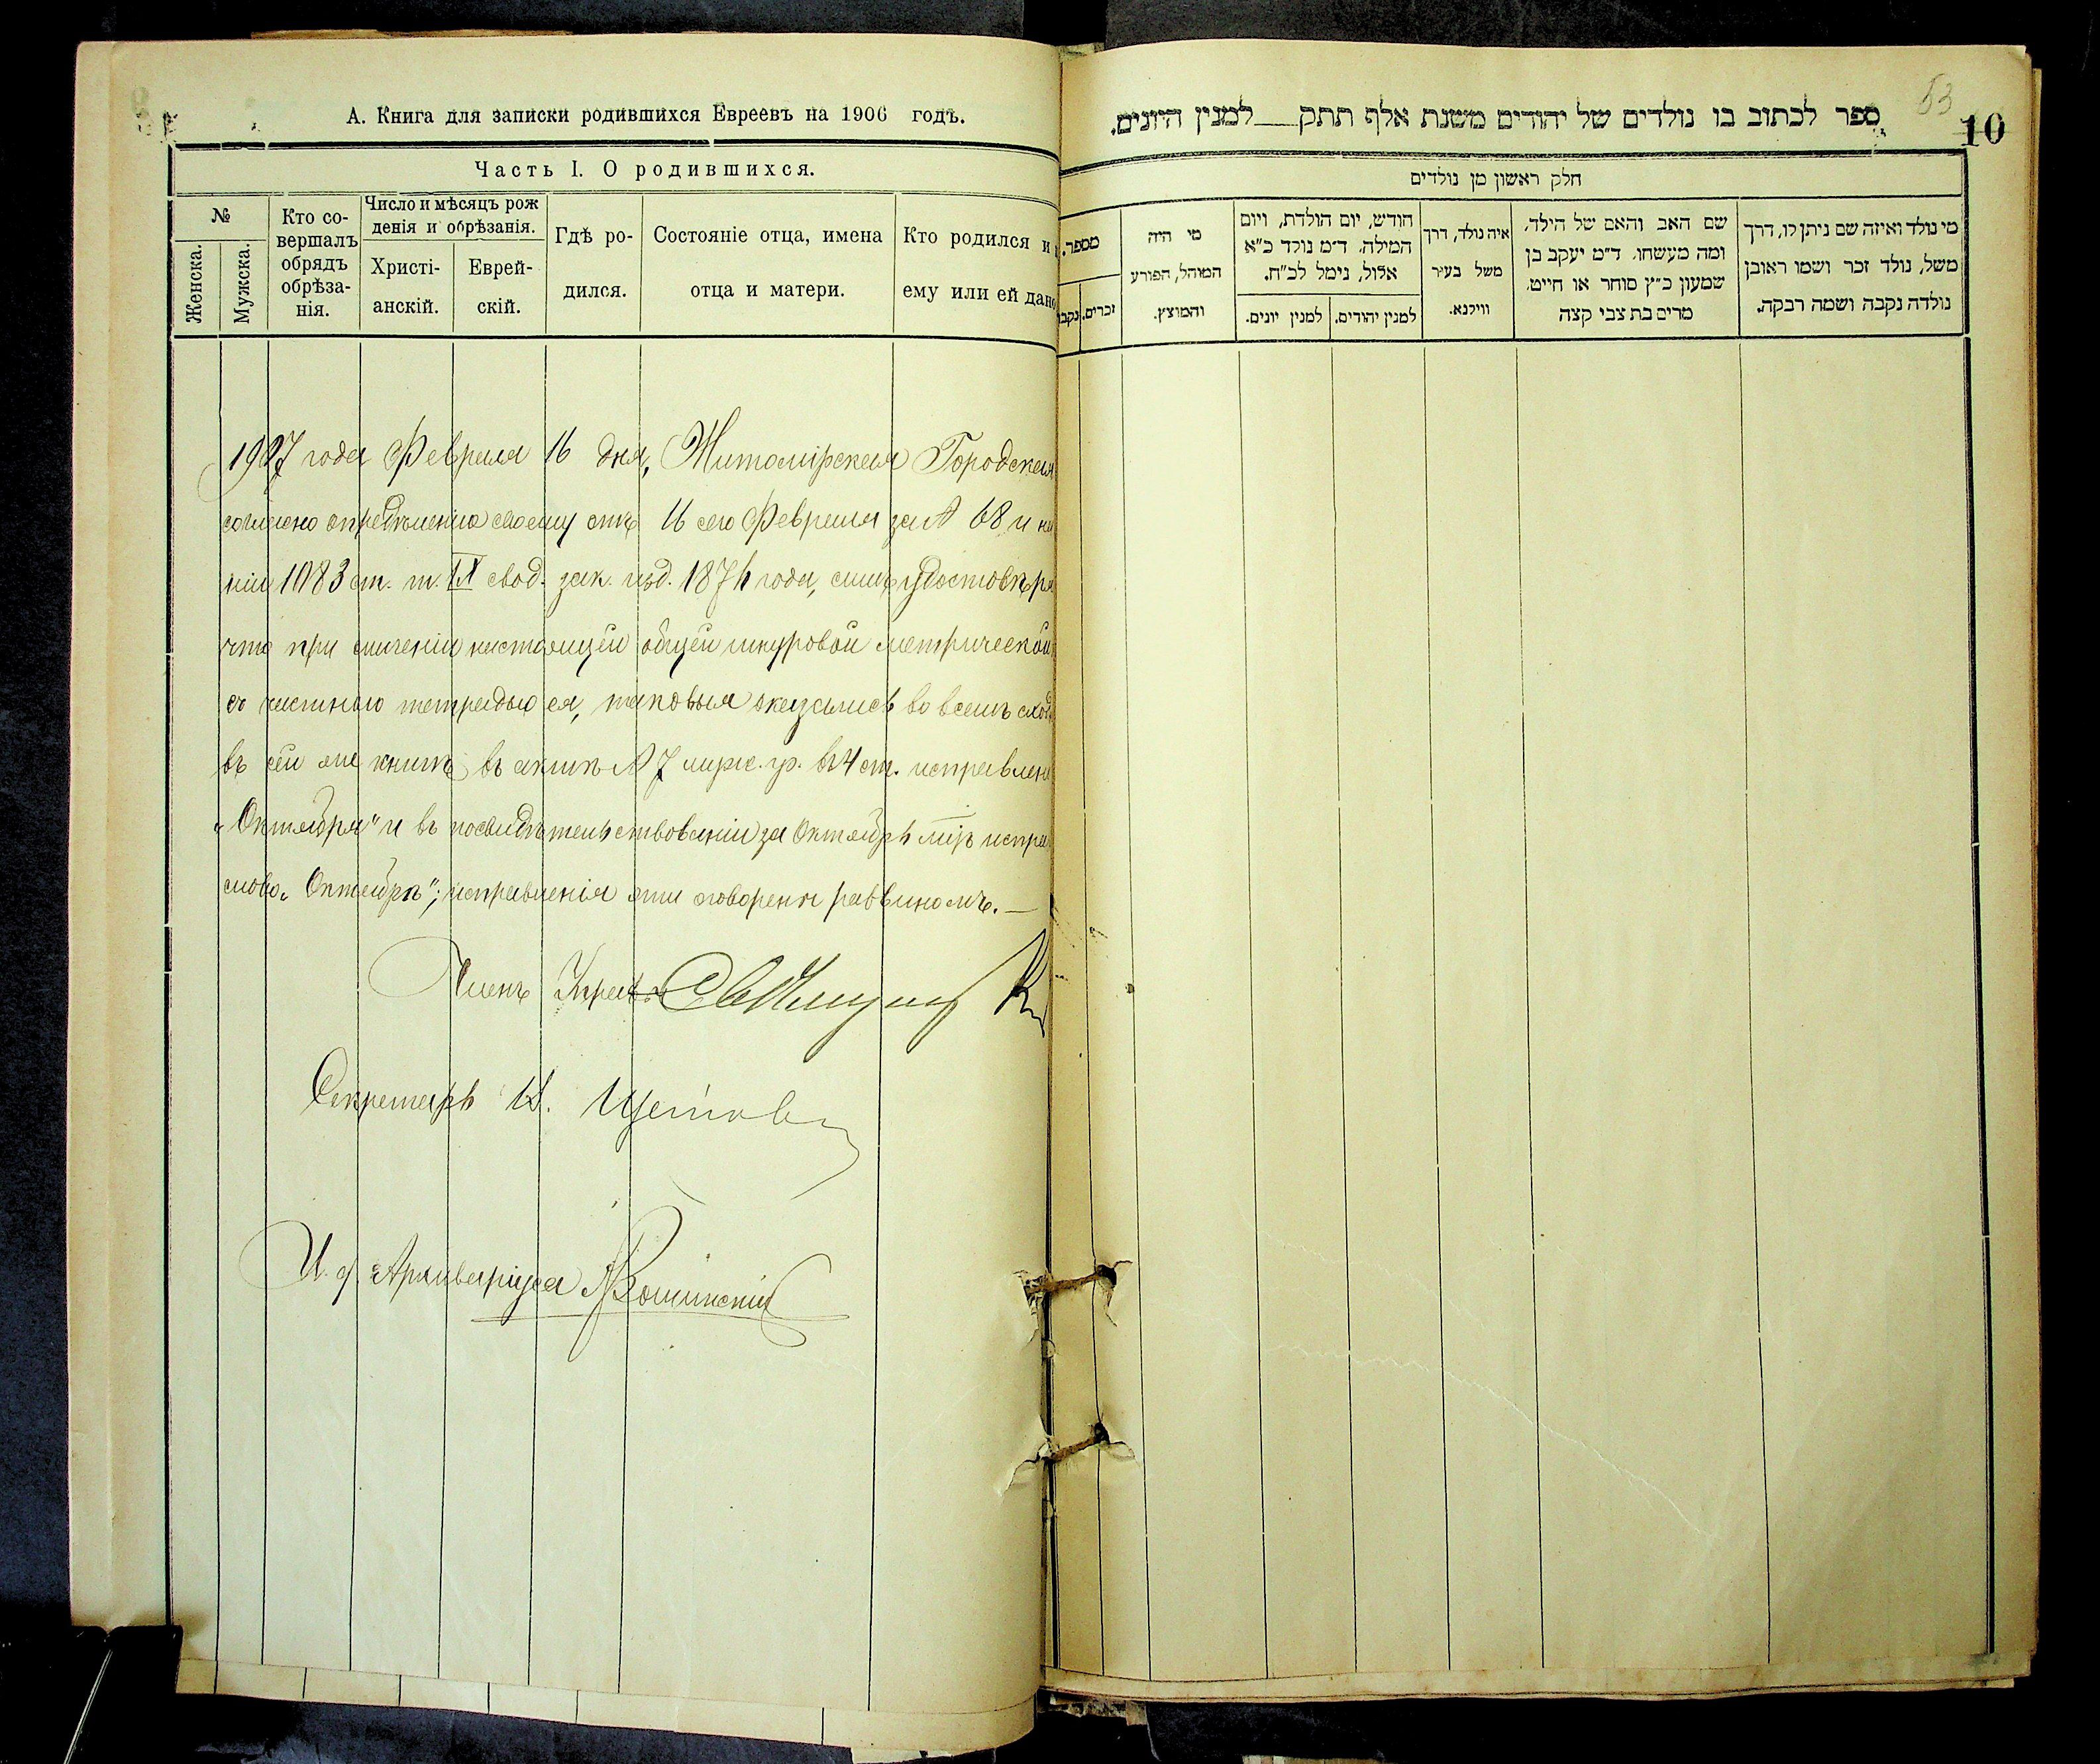 А. Книга для записки родившихся Евреевъ на 1906 годъ.
Часть I. О родившихся.
№
Женска.
Мужска.
Кто со-
вершалъ
обрядъ
обрѣза-
нія.
Число и мѣсяцъ рож
денія и обрѣзанія.
Христі-
анскій.
Еврей-
скій.
Гдѣ ро-
дился.
Состояніе отца, имена
отца и матери.
Кто родился и
ему или ей дано
1907 года Февраля 16 дня, Житомірская Городская
согласно опредѣленію своему отъ 16 сего Февраля за № 68 и на
ніи 1083 ст. т. IX свод. зак. изд. 1876 года, симъ удостовѣря
что при сличеніи настоящей общей шнуровой метрической
съ частною тетрадью ея, таковыя оказались во всемъ сход
въ сей же книгѣ въ актѣ № 7 муж. гр. въ 4 ст. исправлено
„Октября" и въ посвидѣтельствованіи за Октябрь мцъ испра
слово „Октябрь"; исправленія эти оговорены раввиномъ.—
Членъ Управы
Секретарь
И. д. Архиваріуса
53
10
ספר לכתוב בו נולדים של יהודים משנת אלף תתק___למנין היונים.
חלק ראשון מן נולדים
מי נולד ואיזה שם ניתן לו, דרך
משל, נולד זכר ושמו ראובן
נולדה נקבה ושמה רבקה.
שם האב והאם של הילד,
ומה מעשהו. ד״מ יעקב בן
שמעון כ״ץ סוחר או חייט,
מרים בת צבי קצה
איה נולד, דרך
משל בעיר
ווילנא.
חודש, יום הולדת, ויום
המילה. ד״מ נולד כ״א
אלול, נימל לכ״ח.
למנין יהודים.
למנין יונים.
מי היה
המוהל, הפורע
והמוצץ.
מספר.
זכרים.
נקבו